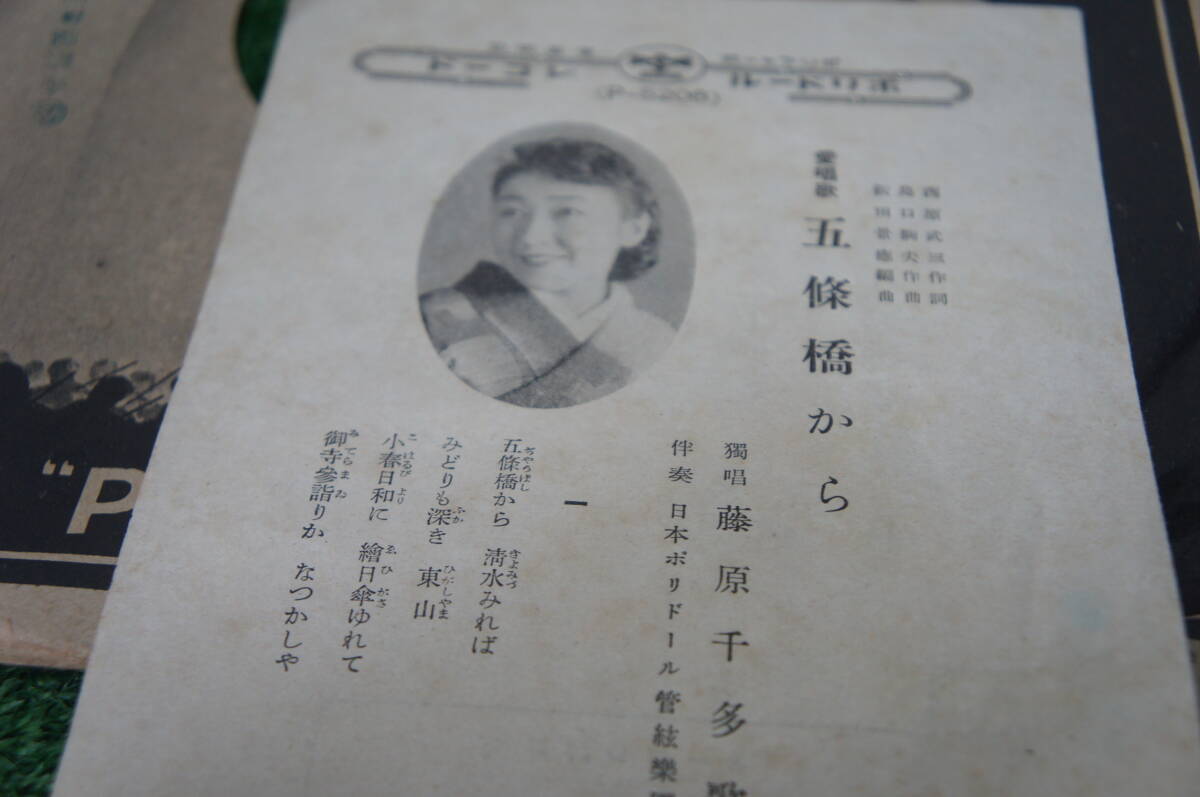 ポリドール レコード
(P-5206)
西原武三作詞
島口駒夫作曲
飯田景應編曲
愛唱歌 五條橋から
獨唱 藤原千多歌
伴奏 日本ポリドール管絃樂團
一
五條橋から 清水みれば
みどりも深き 東山
小春日和に 繪日傘ゆれて
御寺參詣りか なつかしや
"P